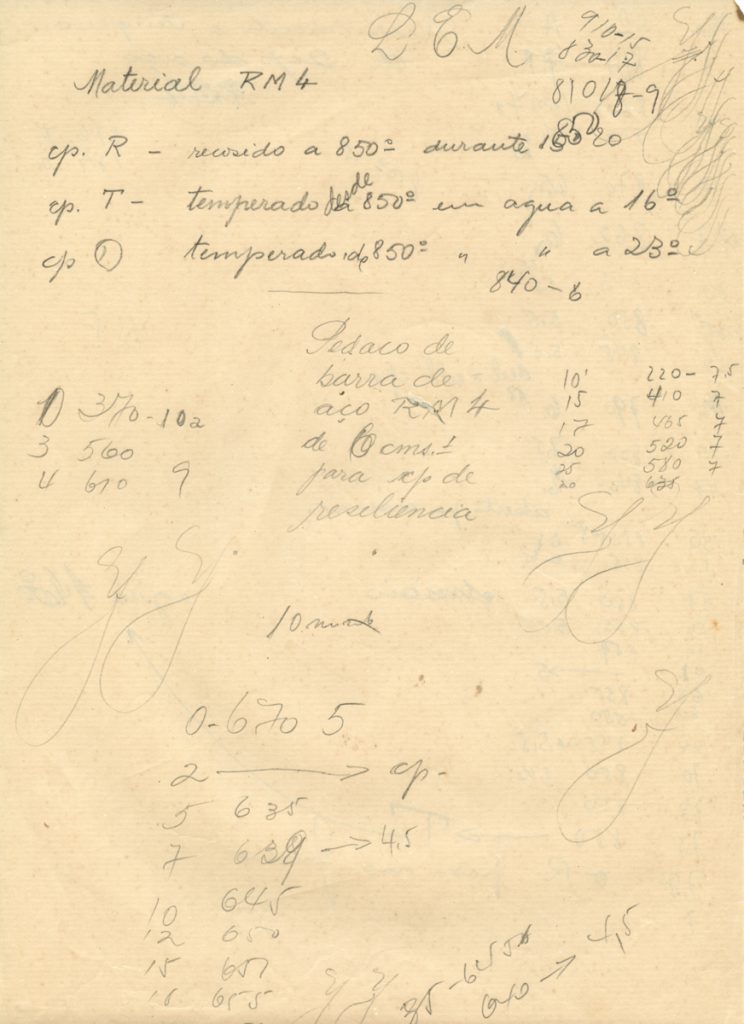 L E M
910-15
830-17
810/8-9
Material RM4
850
cp. R - recosido a 850º durante 20
cp. T - temperado desde 850º em agua a 16º
cp temperado de 850º " " a 23º
840-6
Pedaço de
barra de
aço RM4
de 6 cms.
para cp de
resiliencia
1 370-10
3 560
4 610 9
10' 220-7.5
15 410 7
17 465 7
20 520 7
25 580 7
20 635
10
0-670 5
2 → cp-
5 635
7 639 → 4,5
10 645
12 650
15 651
655
35-645
640 → 4,5